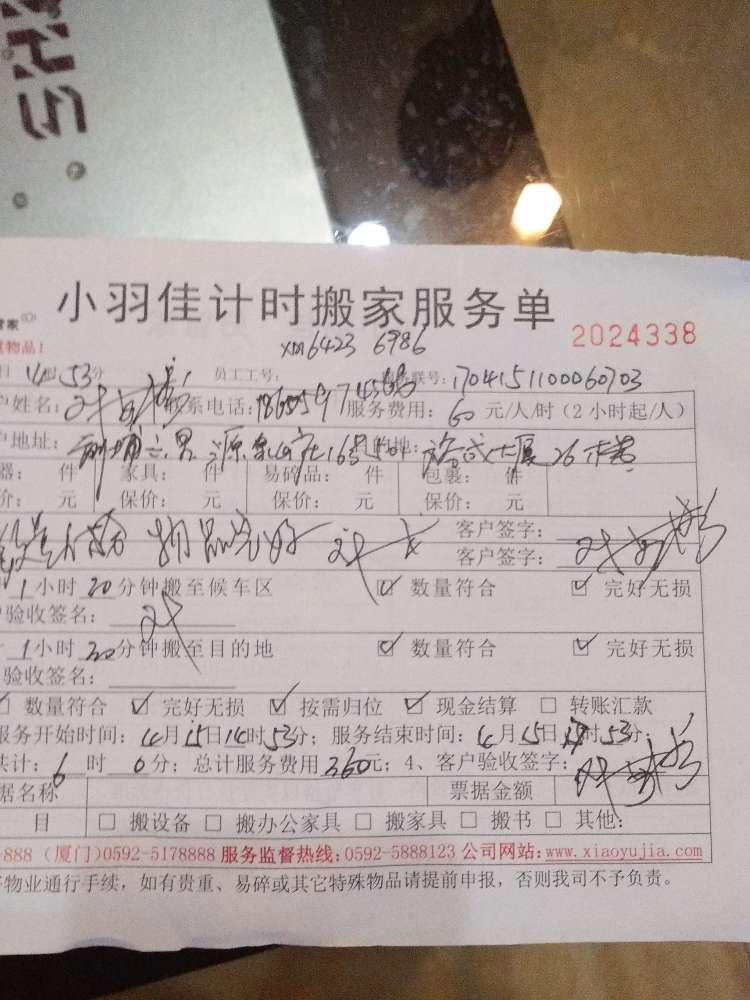 SHK
小羽佳计时搬家服务单
2024338
管家
物品!
XM6423 6986
日 14时53分 员工工号: 联号: 1704151100060703
户姓名: 联系电话: 服务费用: 60 元/人/时 (2小时起/人)
户地址: 目的地:
器: 件 家具: 件 易碎品: 件 包裹: 件
价: 元 保价: 元 保价: 元 保价: 元
物品完好 客户签字:
客户签字:
1小时20分钟搬至候车区 ☑ 数量符合 ☑ 完好无损
户验收签名:
1小时20分钟搬至目的地 ☑ 数量符合 ☑ 完好无损
验收签名:
数量符合 ☑ 完好无损 ☑ 按需归位 ☑ 现金结算 □ 转账汇款
服务开始时间: 4月15日14时53分; 服务结束时间: 4月15日17时53分;
共计: 6时0分; 总计服务费用360元; 4、客户验收签字:
据名称 票据金额
目 □ 搬设备 □ 搬办公家具 □ 搬家具 □ 搬书 □ 其他:
-888 (厦门)0592-5178888 服务监督热线:0592-5888123 公司网站:www.xiaoyujia.com
物业通行手续，如有贵重、易碎或其它特殊物品请提前申报，否则我司不予负责。